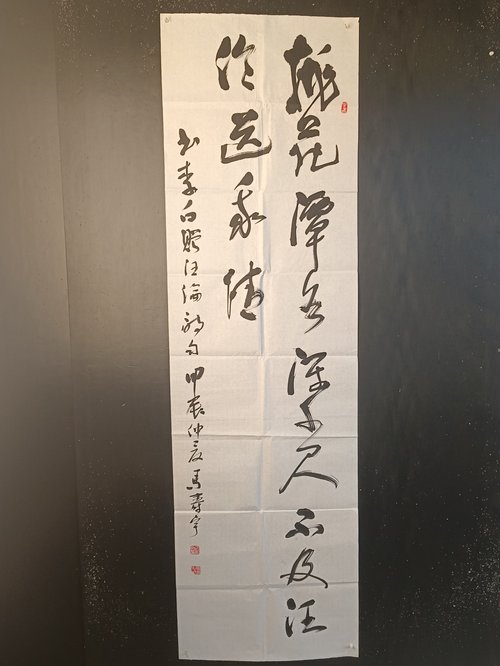 桃花潭水深千尺不及汪
伦送我情
书李白赠汪倫诗句 甲辰仲夏 马